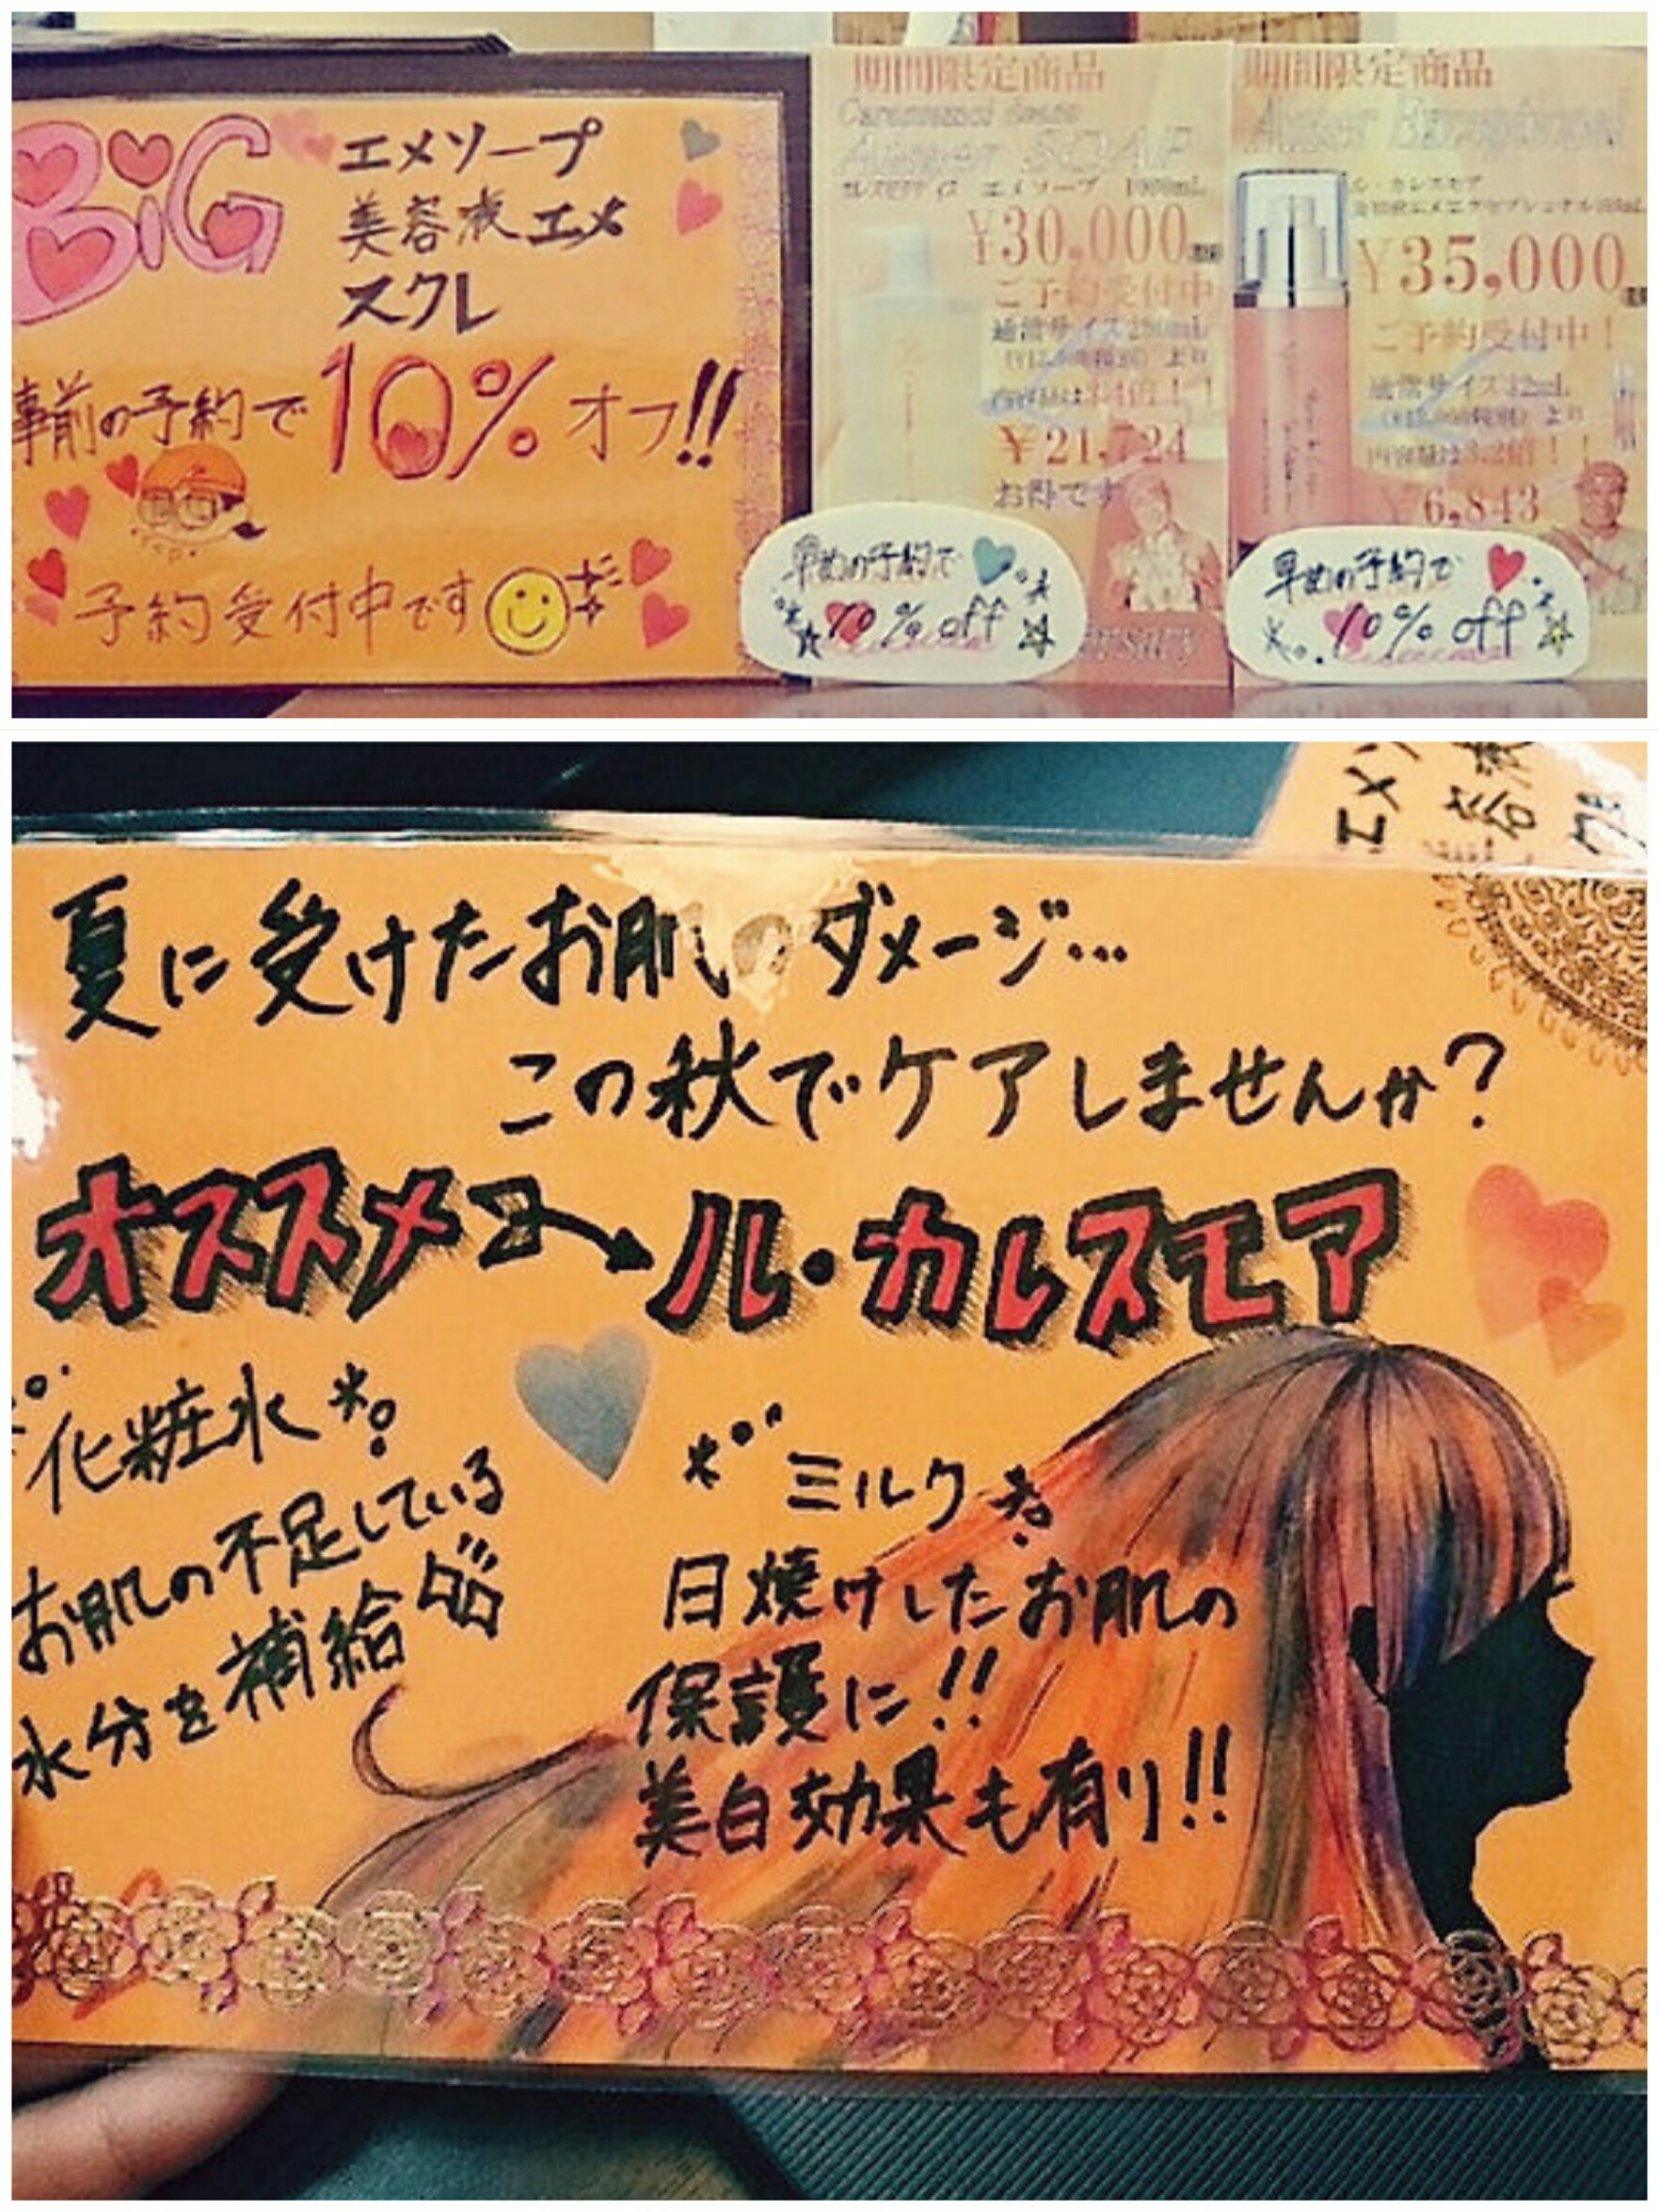 BiG
エメソープ
美容液エメ
スクレ
事前の予約で10%オフ!!
予約受付中です
期間限定商品
エメソープ 1000mL
¥30,000
ご予約受付中
通常サイズ250mL
より
¥21,724
お得です
早めの予約で
10% off
期間限定商品
ル・カレスモア
¥35,000
ご予約受付中!
通常サイズ32mL
より
内容量は3.2倍!!
¥6,843
早めの予約で
10% off
エメソ
夏に受けたお肌 ダメージ…
この秋でケアしませんか?
オススメ→ル・カレスモア
化粧水
お肌の不足している
水分を補給
ミルク
日焼けしたお肌の
保護に!!
美白効果も有り!!